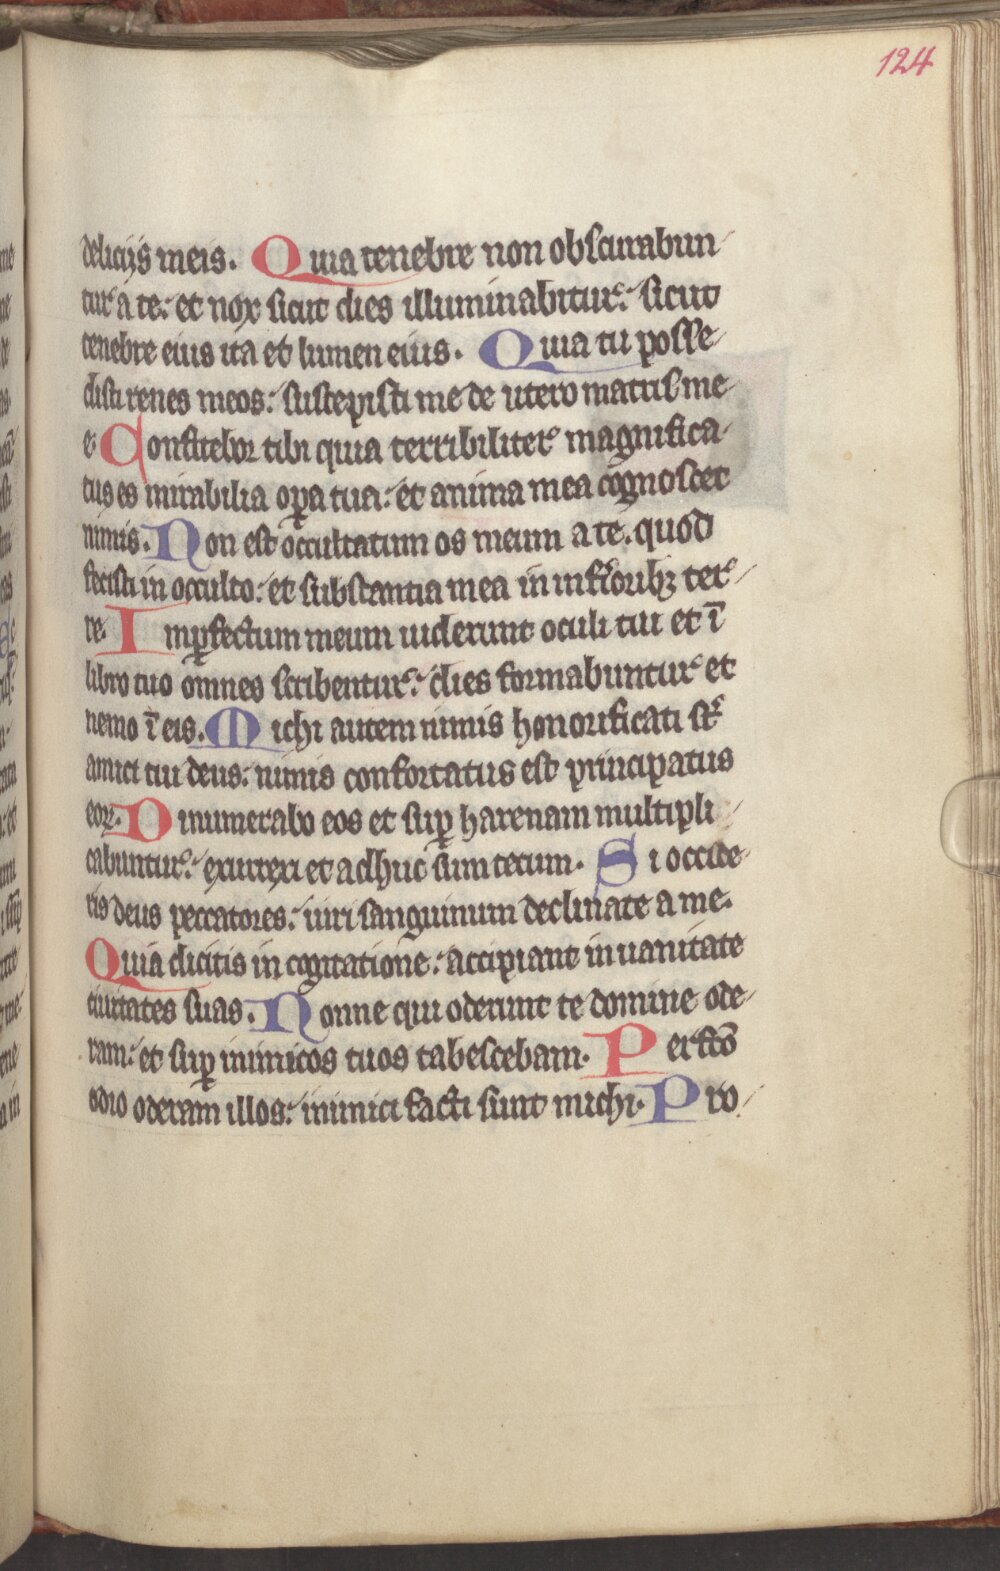 124
deliciis meis. Quia tenebre non obscurabun-
tur a te: et nox sicut dies illuminabitur: sicut
tenebre eius ita et lumen eius. Quia tu posse-
disti renes meos: suscepisti me de utero matris me-
e. Confitebor tibi quia terribiliter magnifica-
tus es mirabilia opa tua: et anima mea cognoscet
nimis. Non est occultatum os meum a te. quod
fecisti in occulto: et substantia mea in inferioribꝫ ter-
re. Imꝑfectum meum uiderunt oculi tui et ī
libro tuo omnes scribentur: dies formabuntur et
nemo ī eis. Michi autem nimis honorificati st
amici tui deus: nimis confortatus est principatus
eoꝝ. Dinumerabo eos et suꝑ harenam multipli-
cabuntur: exurrexi et adhuc sum tecum. Si occide-
ris deus peccatores: uiri sanguinum declinate a me.
Quia dicitis in cogitatione: accipiant in uanitate
ciuitates suas. Nonne qui oderunt te domine ode-
ram: et suꝑ inimicos tuos tabescebam. Perfcō
odio oderam illos: inimici facti sunt michi. Pro-